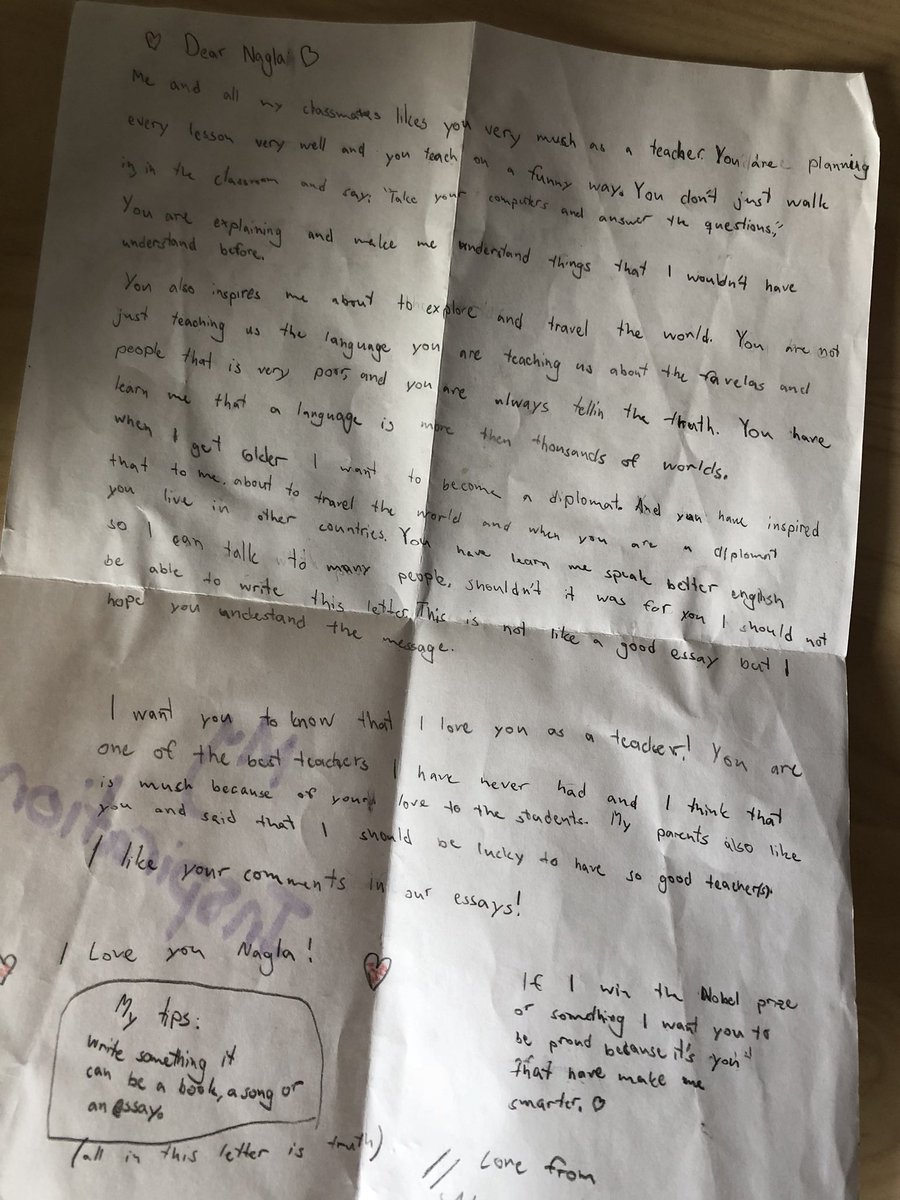 ♡ Dear Nagla ♡
Me and all my classmates likes you very much as a teacher. You are planning
every lesson very well and you teach on a funny way. You don't just walk
in in the classroom and say: "Take your computers and answer the questions,"
You are explaining and make me understand things that I wouldn't have
understand before.
You also inspires me about to explore and travel the world. You are not
just teaching us the language you are teaching us about the favelas and
people that is very poor, and you are always tellin the truth. You have
learn me that a language is more then thousands of worlds.
When I get older I want to become a diplomat. And you have inspired
that to me. about to travel the world and when you are a diplomat
you live in other countries. You have learn me speak better english
so I can talk to many people, shouldn't it was for you I should not
be able to write this letter. This is not like a good essay but I
hope you understand the message.
I want you to know that I love you as a teacher! You are
one of the best teachers I have never had and I think that
is much because of your love to the students. My parents also like
you and said that I should be lucky to have so good teacher(s).
I like your comments in our essays!
I Love you Nagla!
My tips:
Write something it
can be a book, a song or
an essay.
(all in this letter is truth)
If I win the Nobel prize
or something I want you to
be proud because it's you
that have make me
smarter. ♡
// Love from
My
Inspiration